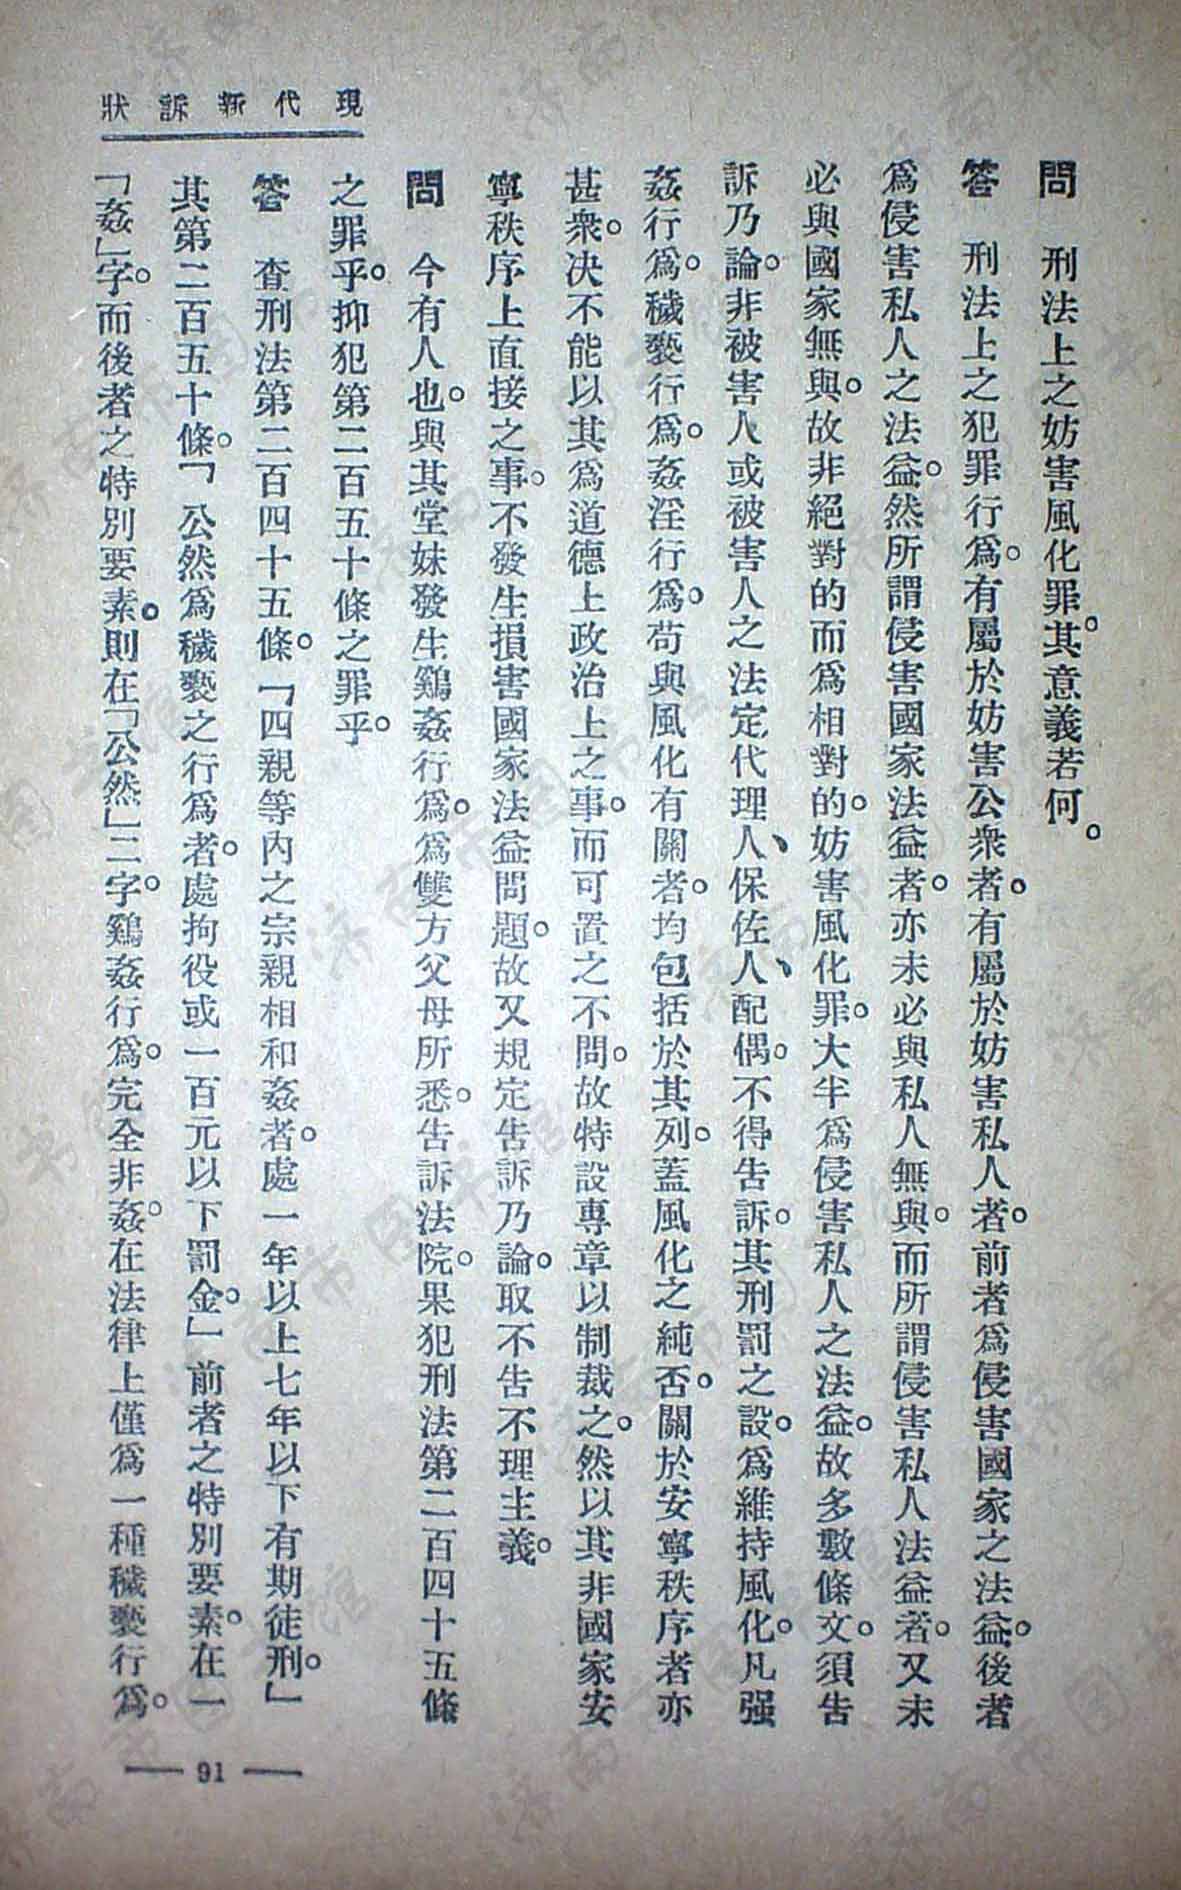 現代新訴狀
問　刑法上之妨害風化罪。其意義若何。
答　刑法上之犯罪行爲。有屬於妨害公衆者。有屬於妨害私人者。前者爲侵害國家之法益。後者
爲侵害私人之法益。然所謂侵害國家法益者。亦未必與私人無與。而所謂侵害私人法益者。又未
必與國家無與。故非絕對的而爲相對的。妨害風化罪。大半爲侵害私人之法益。故多數條文。須告
訴乃論。非被害人或被害人之法定代理人、保佐人、配偶。不得告訴。其刑罰之設。爲維持風化。凡强
姦行爲。穢褻行爲。姦淫行爲。苟與風化有關者。均包括於其列。蓋風化之純否。關於安寧秩序者亦
甚衆。决不能以其爲道德上政治上之事。而可置之不問。故特設專章以制裁之。然以其非國家安
寧秩序上直接之事。不發生損害國家法益問題。故又規定告訴乃論。取不告不理主義。
問　今有人也。與其堂妹發生鷄姦行爲。爲雙方父母所悉。告訴法院。果犯刑法第二百四十五條
之罪乎。抑犯第二百五十條之罪乎。
答　查刑法第二百四十五條。「四親等內之宗親相和姦者。處一年以上七年以下有期徒刑。」
其第二百五十條。「公然爲穢褻之行爲者。處拘役或一百元以下罰金。」前者之特別要素。在一
「姦」字。而後者之特別要素。則在「公然」二字。鷄姦行爲。完全非姦。在法律上僅爲一種穢褻行爲。
— 91 —
济南市图书馆